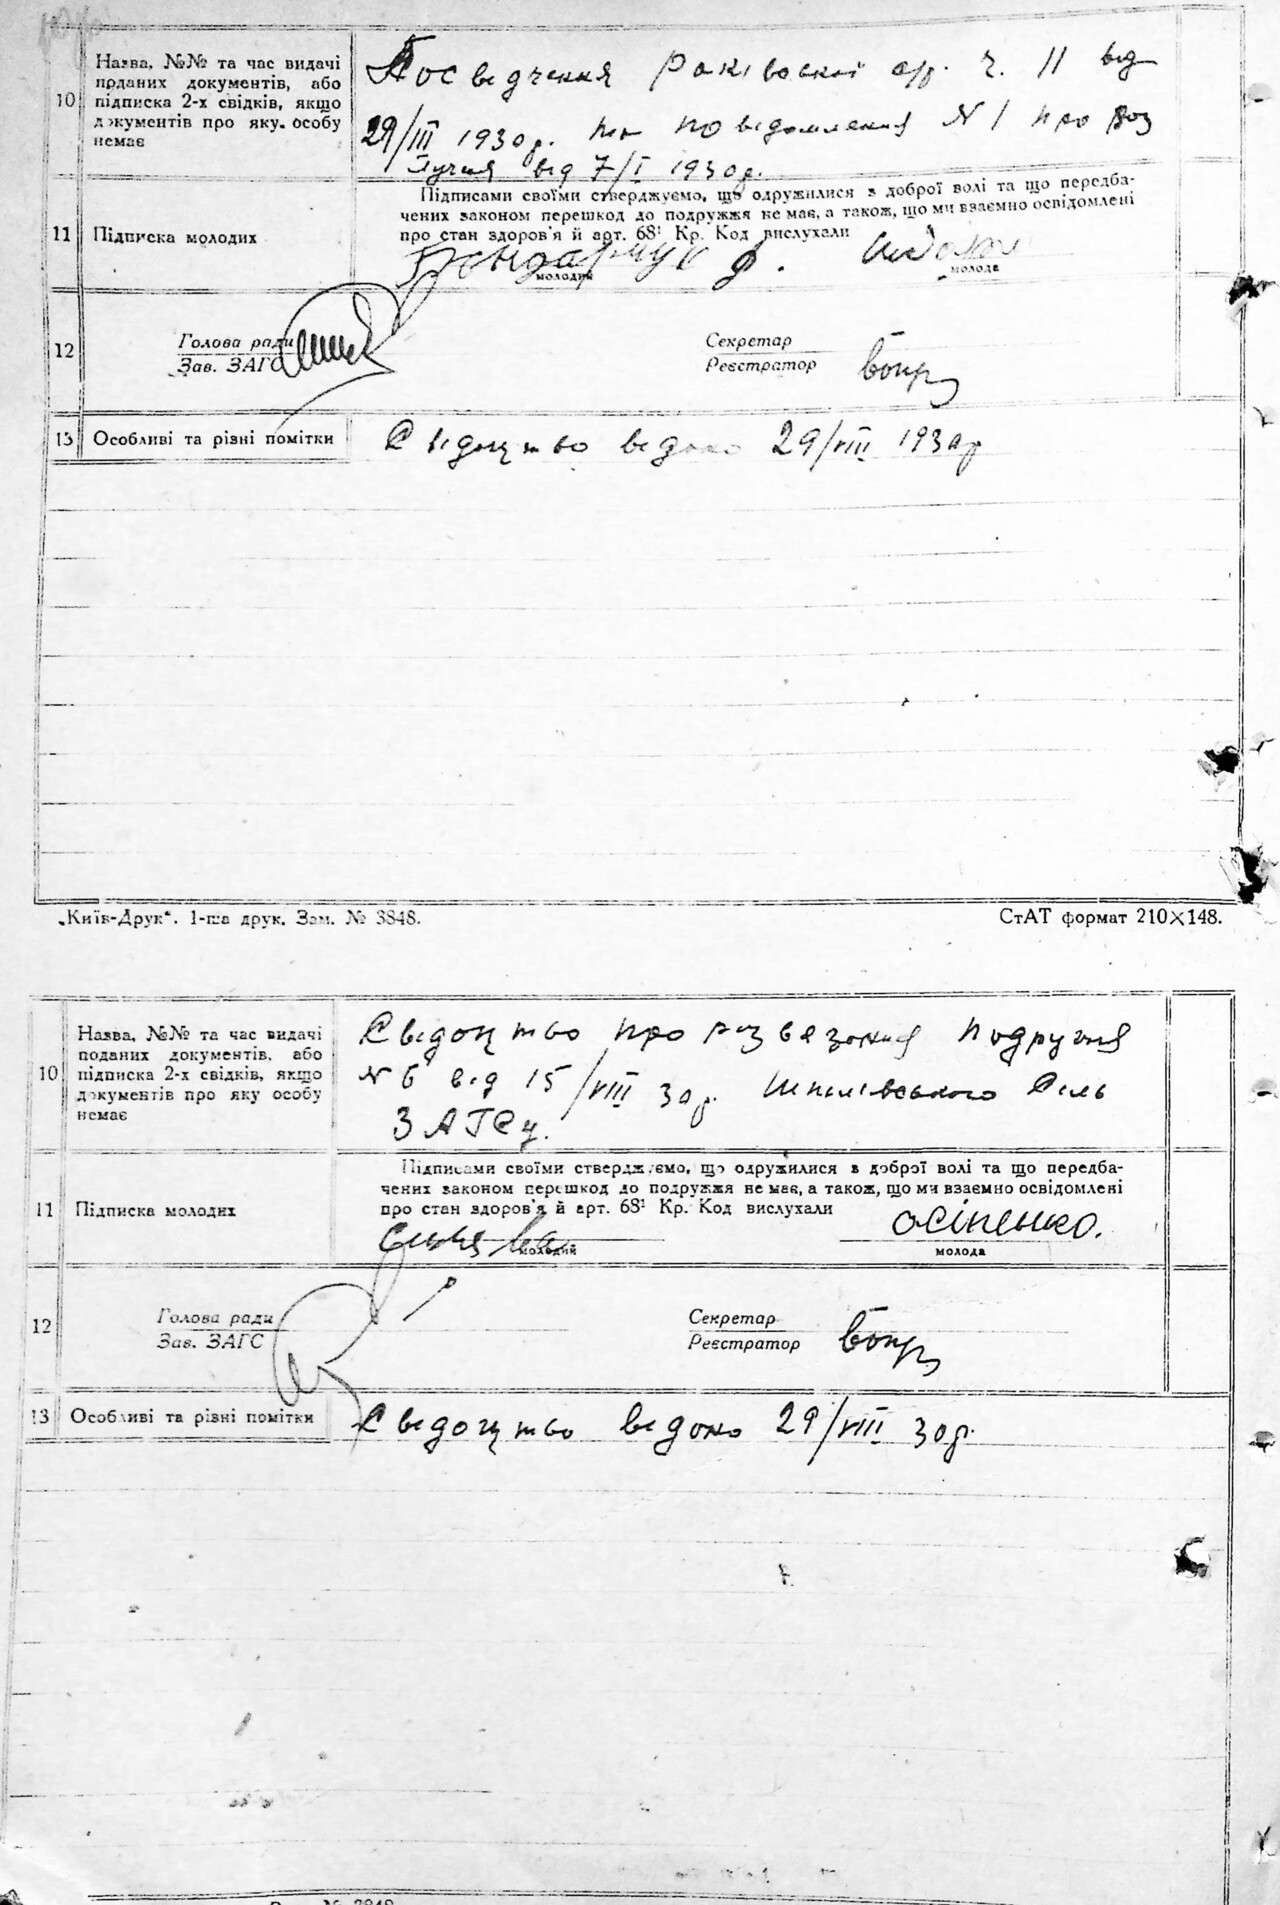 10
Назва, №№ та час видачі
поданих документів, або
підписка 2-х свідків, якщо
документів про яку. особу
немає
Посвідчення Раківської с/р. ч. 11 від
29/III 1930р. повідомлення N 1 про роз
лучня від 7/I 1930р.
11
Підписка молодих
Підписами своїми стверджуємо, що одружилися з доброї волі та що передба-
чених законом перешкод до подружжя не має, а також, що ми взаємно освідомлені
про стан здоров'я й арт. 68¹ Кр. Код вислухали
Бондарчук Ф.
молодий
молода
12
Голова ради
Зав. ЗАГС
Секретар
Реєстратор
13
Особливі та різні помітки
Свідоцтво відоно 29/VIII 1930р
„Київ-Друк“. 1-ша друк. Зам. № 3848.
СтАТ формат 210×148.
10
Назва, №№ та час видачі
поданих документів, або
підписка 2-х свідків, якщо
документів про яку особу
немає
Свідоцтво про розвязання подружжя
N 6 від 15/VIII 30р. Шпилівського Сіль
ЗАГСу.
11
Підписка молодих
Підписами своїми стверджуємо, що одружилися з доброї волі та що передба-
чених законом перешкод до подружжя не має, а також, що ми взаємно освідомлені
про стан здоров'я й арт. 68¹ Кр. Код вислухали
осіпенко.
молодий
молода
12
Голова ради
Зав. ЗАГС
Секретар
Реєстратор
13
Особливі та різні помітки
Свідоцтво відоно 29/VIII 30р.
№ 3848